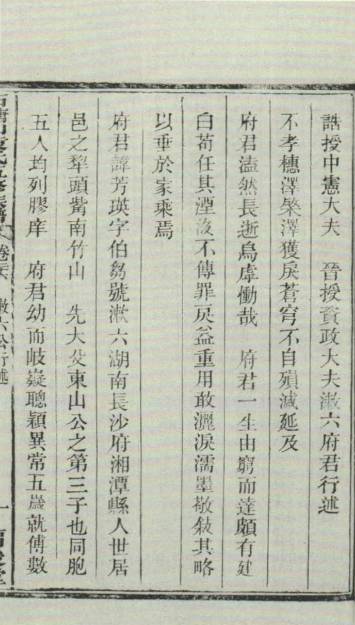 誥授中憲大夫　晉授資政大夫漱六府君行述
不孝穗澤榮澤獲戾蒼穹不自殞滅延及
府君溘然長逝烏虖慟哉　府君一生由窮而達頗有建
白苟任其湮沒不傳罪戾益重用敢灑淚濡墨敬敍其略
以垂於家乘焉
府君諱芳瑛字伯芻號漱六湖南長沙府湘潭縣人世居
邑之犂頭觜南竹山　先大父東山公之第三子也同胞
五人均列膠庠　府君幼而岐嶷聰穎異常五歲就傅數
漱六公行述